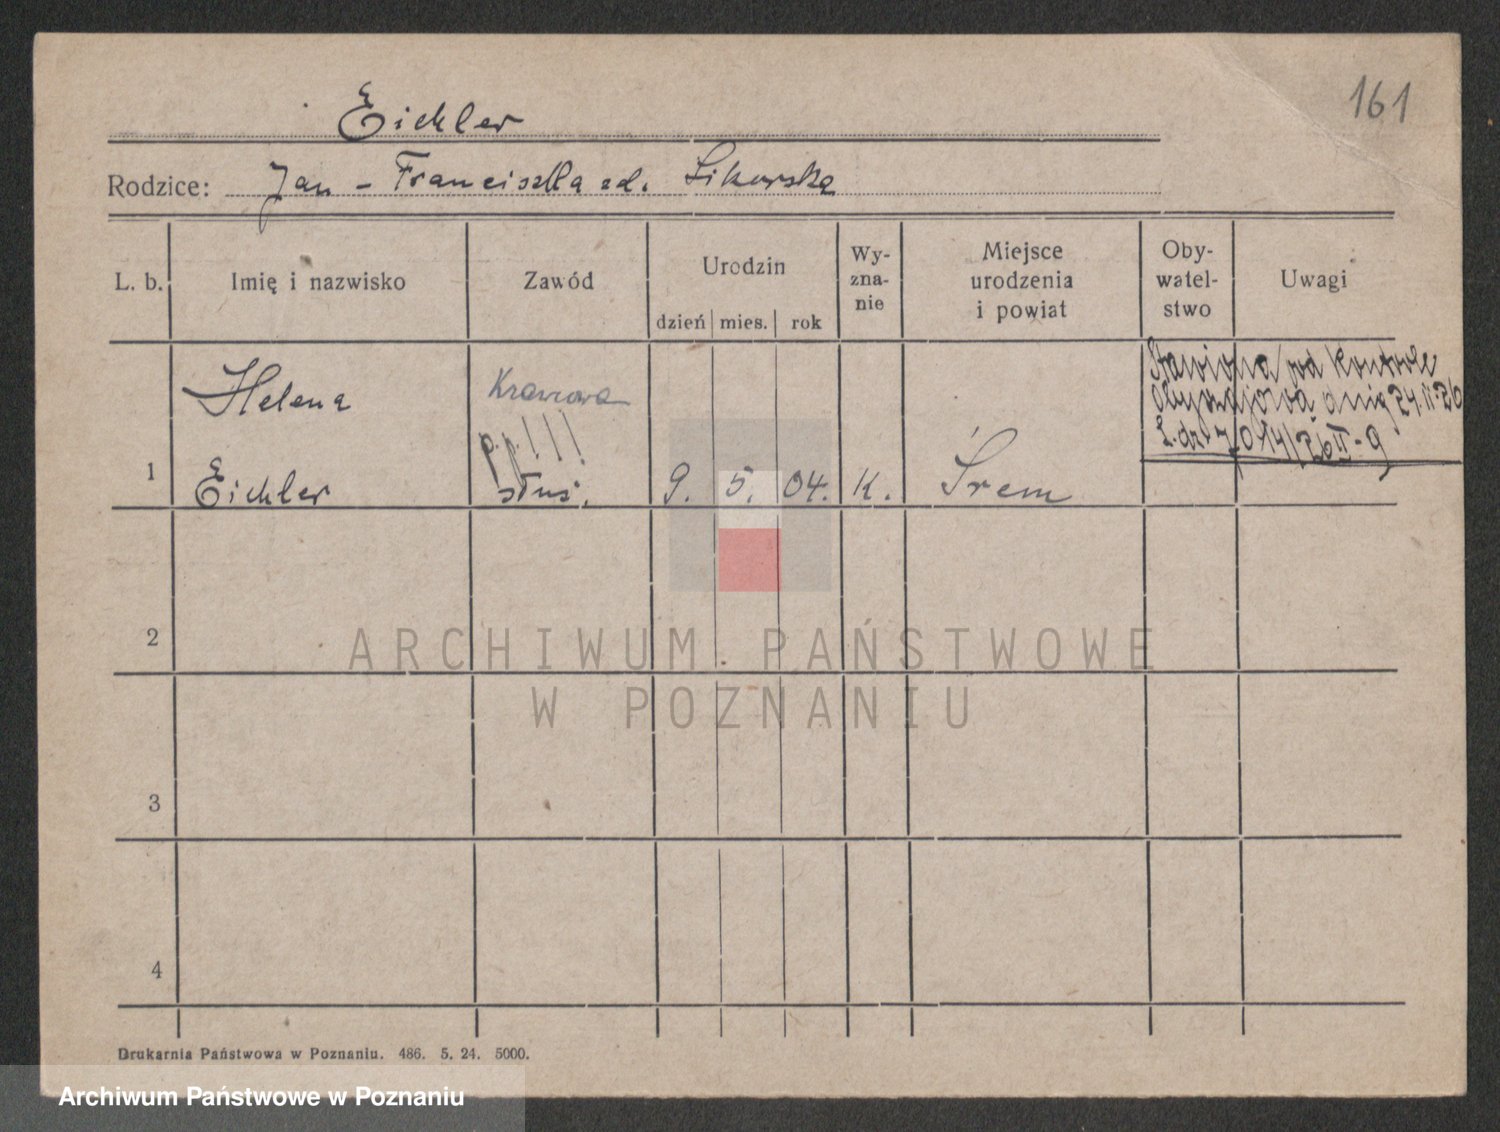 161
Eichler
Rodzice: Jan - Franciszka zd. Sikorska
L. b.
Imię i nazwisko
Zawód
Urodzin
dzień
mies.
rok
Wy-
zna-
nie
Miejsce
urodzenia
i powiat
Oby-
watel-
stwo
Uwagi
1
Helena
Eichler
Krawcowa
p.p.!!!
służ.
9.
5.
04.
K.
Śrem
Stawiona pod kontrolę
dnia 24.II.26
L. dz. 7014/26 II-9
2
3
4
ARCHIWUM PAŃSTWOWE
W POZNANIU
Drukarnia Państwowa w Poznaniu. 486. 5. 24. 5000.
Archiwum Państwowe w Poznaniu